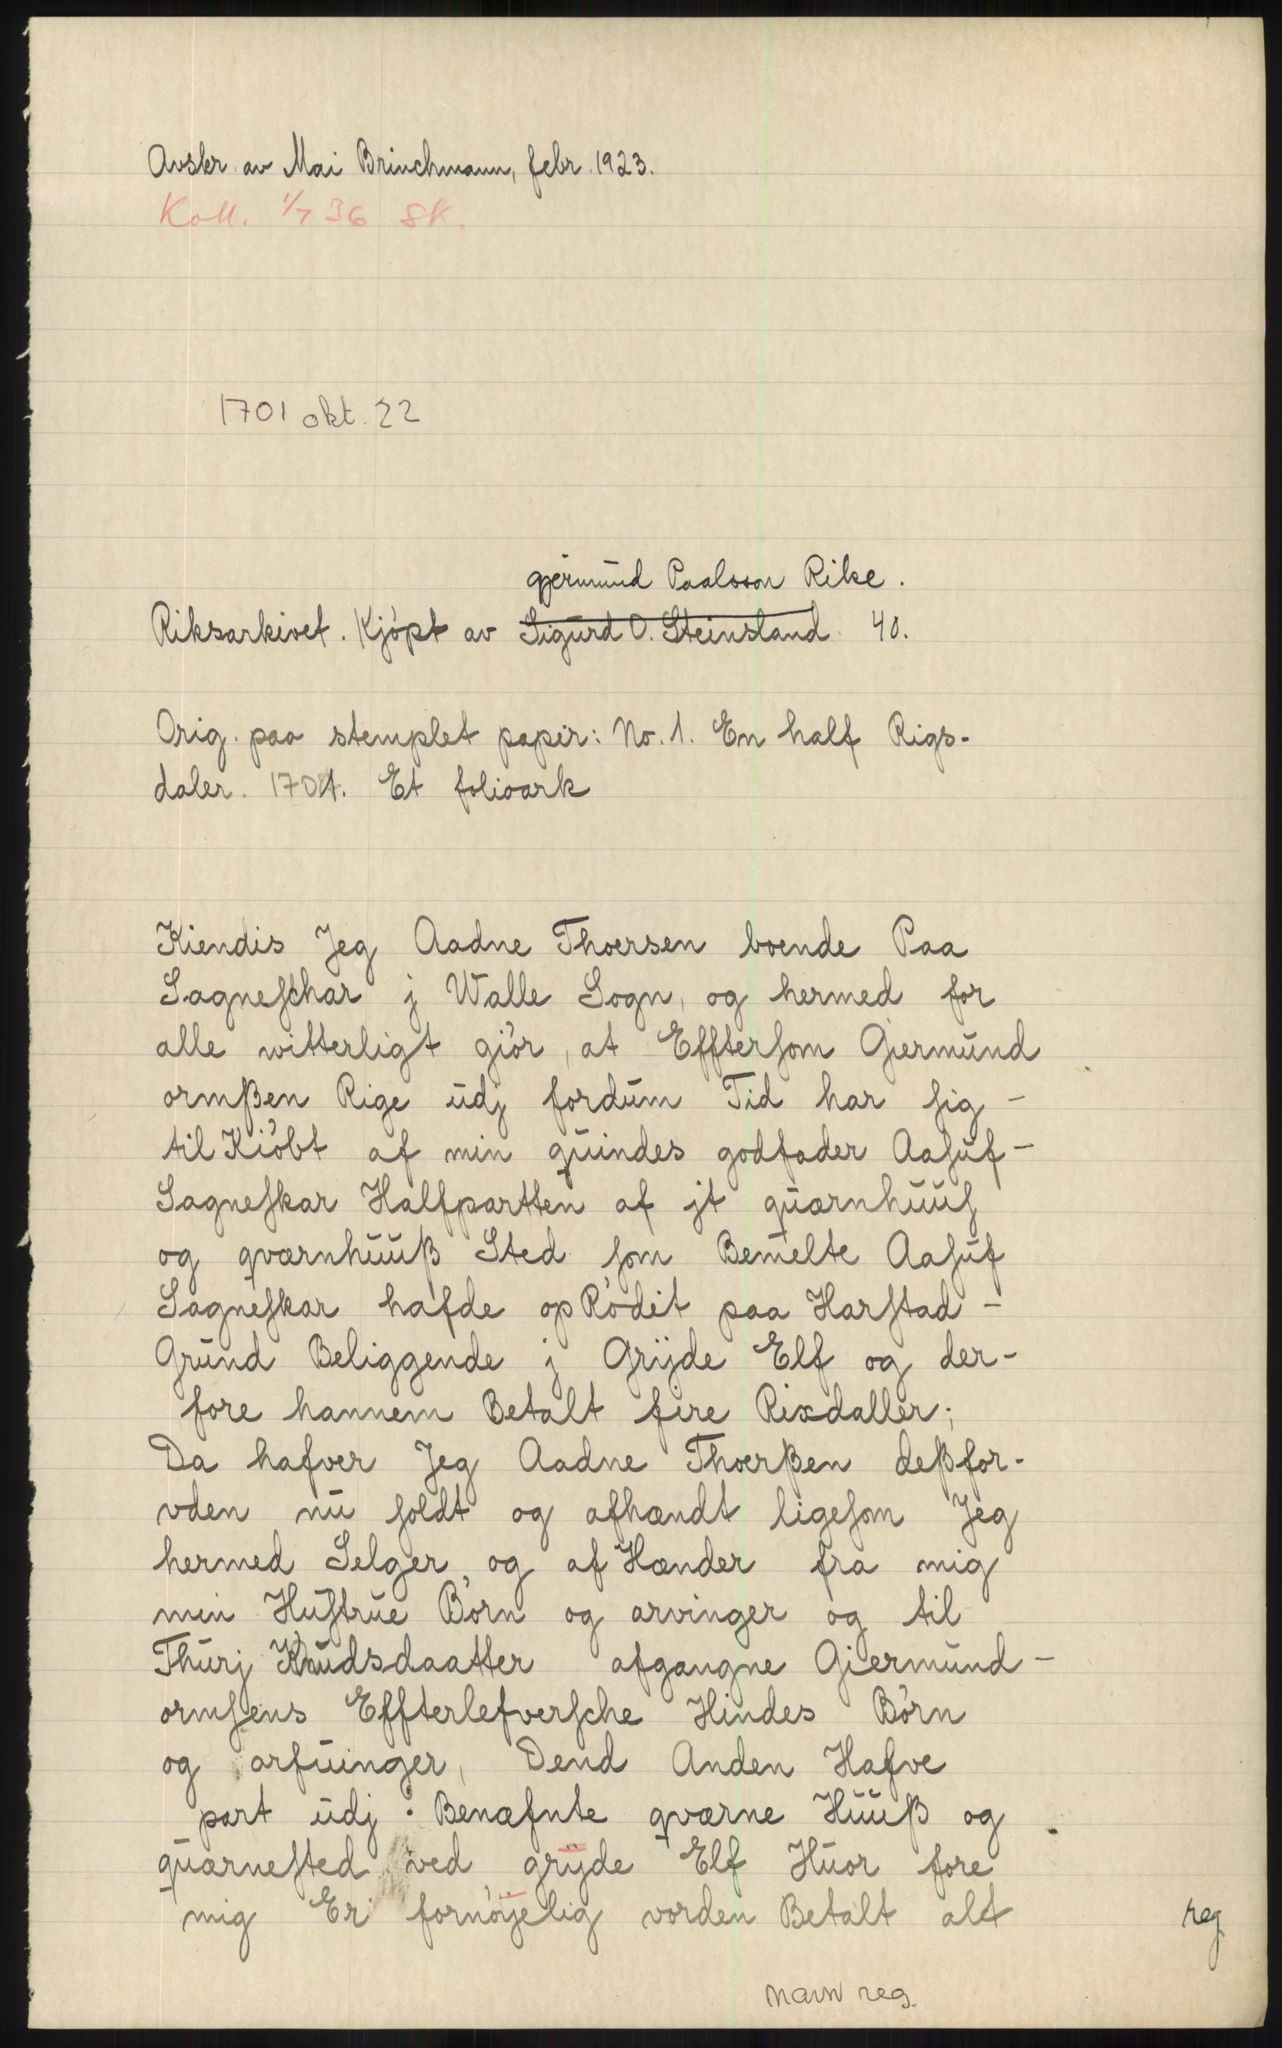 Avskr. av Mai Brinchmann, febr. 1923.
Koll. 1/7 36 SK.
1701 okt. 22
Gjermund Paalsson Rike.
Riksarkivet. Kjöpt av Sigurd O. Steinsland 40.
Orig. paa stemplet papir: No. 1. En half Rigs-
daler. 1701. Et folioark
Kiendis Jeg Aadne Thoersen boende Paa
Sagneſchar j Walle Sogn, og hermed for
alle witterligt giör, at Efftersom Giermund
ormßen Rige udj fordum Tid har ſig -
til Kiöbt af min quindes godfader Aaſuf -
Sagneſkar Halfpartten af jt quærnhuuſ
og qværnhuuß Sted ſom Bemelte Aaſuf
Sagneſkar hafde op Rödit paa Harſtad -
Grund Beliggende j Grÿde Elf og der-
fore hannem Betalt fire Rixdaller;
Da hafver Jeg Aadne Thoerßen deßfor-
vden nu ſoldt og afhændt ligeſom Jeg
hermed Selger og af Hænder fra mig
min Huſtrue Börn og arvinger og til
Thurj Knudsdaatter afgangne Giermund -
ormſens Effterlefverſche Hindes Börn
og arfuinger, Dend Anden Hafve
part udj Benæfnte qværne Huuß og
quærneſted ved grÿde Elf Huor fore
mig Er fornöÿelig vorden Betalt alt
reg
navn reg.